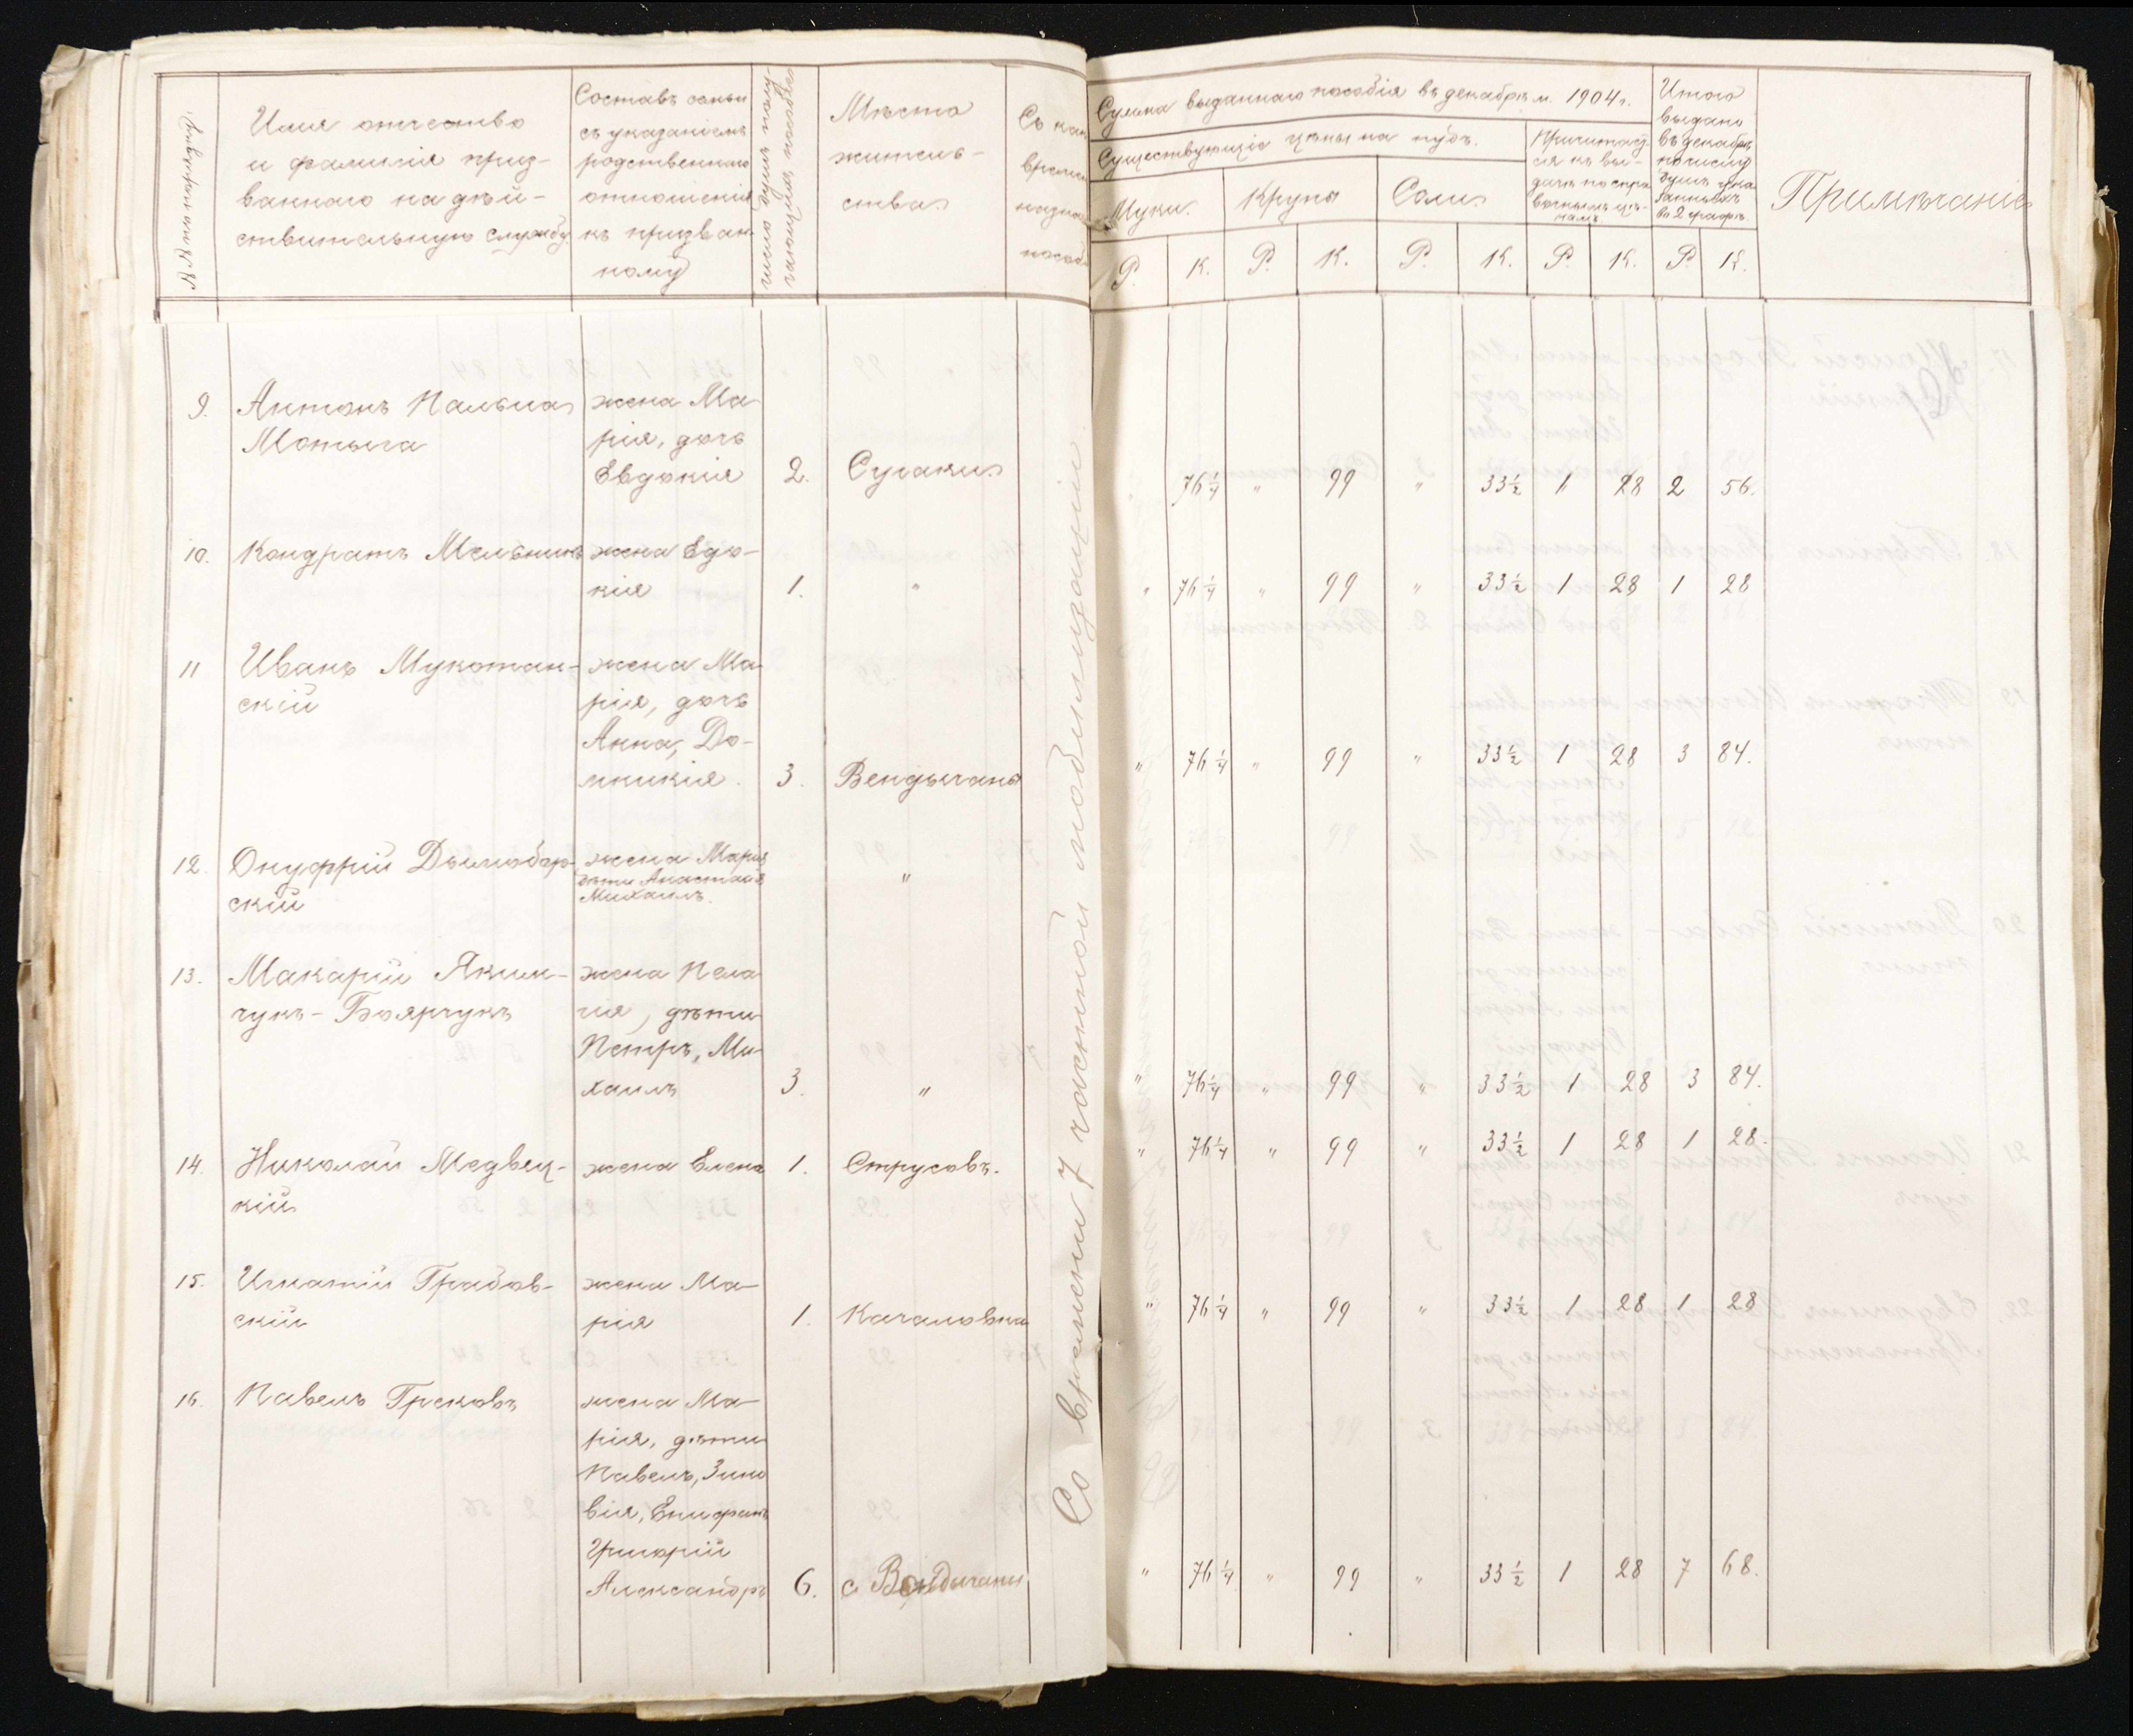 №№ по порядку
Имя отчество
и фамилія приз-
ваннаго на дѣй-
ствительную службу.
Составъ семьи
съ указаніемъ
родственнаго
отношенія
къ призван-
ному
Число душъ полу-
чающихъ пособіе
Мѣсто
житель-
ства
Съ как
времени
назна
пособ
Сумма выданнаго пособія въ декабрѣ м. 1904 г.
Существующіе цѣны на пудъ.
Муки.
Крупы
Соли
Причитающ
ся къ вы-
дачѣ по спра
вочнымъ цѣ-
намъ
Итого
выдано
въ декабрѣ
по числу
душъ ука
занныхъ
въ 2 графѣ
Примѣчаніе
Р. К. Р. К. Р. К. Р. К. Р К.
9. Антонъ Пальма жена Ма-
Мотыга рія, дочь
Евдокія 2. Сугаки
" 76 1/4 " 99 " 33 1/2 1 28 2 56.
10. Кондратъ Мельникъ жена Едо-
кія 1. "
" 76 1/4 " 99 " 33 1/2 1 28 1 28
11 Иванъ Мукотан- жена Ма-
скій рія, дочь
Анна, До-
мникія. 3. Вендычаны
" 76 1/4 " 99 " 33 1/2 1 28 3 84.
12. Онуфрій Дымобор- жена Марія
скій дѣти Анастасія
Михаилъ. "
13. Макарій Яким- жена Пела
чукъ-Боярчукъ гія, дѣти
Петръ, Ми-
хаилъ 3. "
" 76 1/4 " 99 " 33 1/2 1 28 3 84.
14. Николай Медвец- жена Елена 1. Струсовъ.
кій
" 76 1/4 " 99 " 33 1/2 1 28 1 28.
15. Игнатій Грабов- жена Ма-
скій рія 1. Качаловка
" 76 1/4 " 99 " 33 1/2 1 28 1 28
16. Павелъ Грековъ жена Ма-
рія, дѣти
Павелъ, Зино
вія, Епифанъ
Григорій
Александръ 6. с Вендичаны
" 76 1/4 " 99 " 33 1/2 1 28 7 68.
Со времени 7 частной мобилизаціи